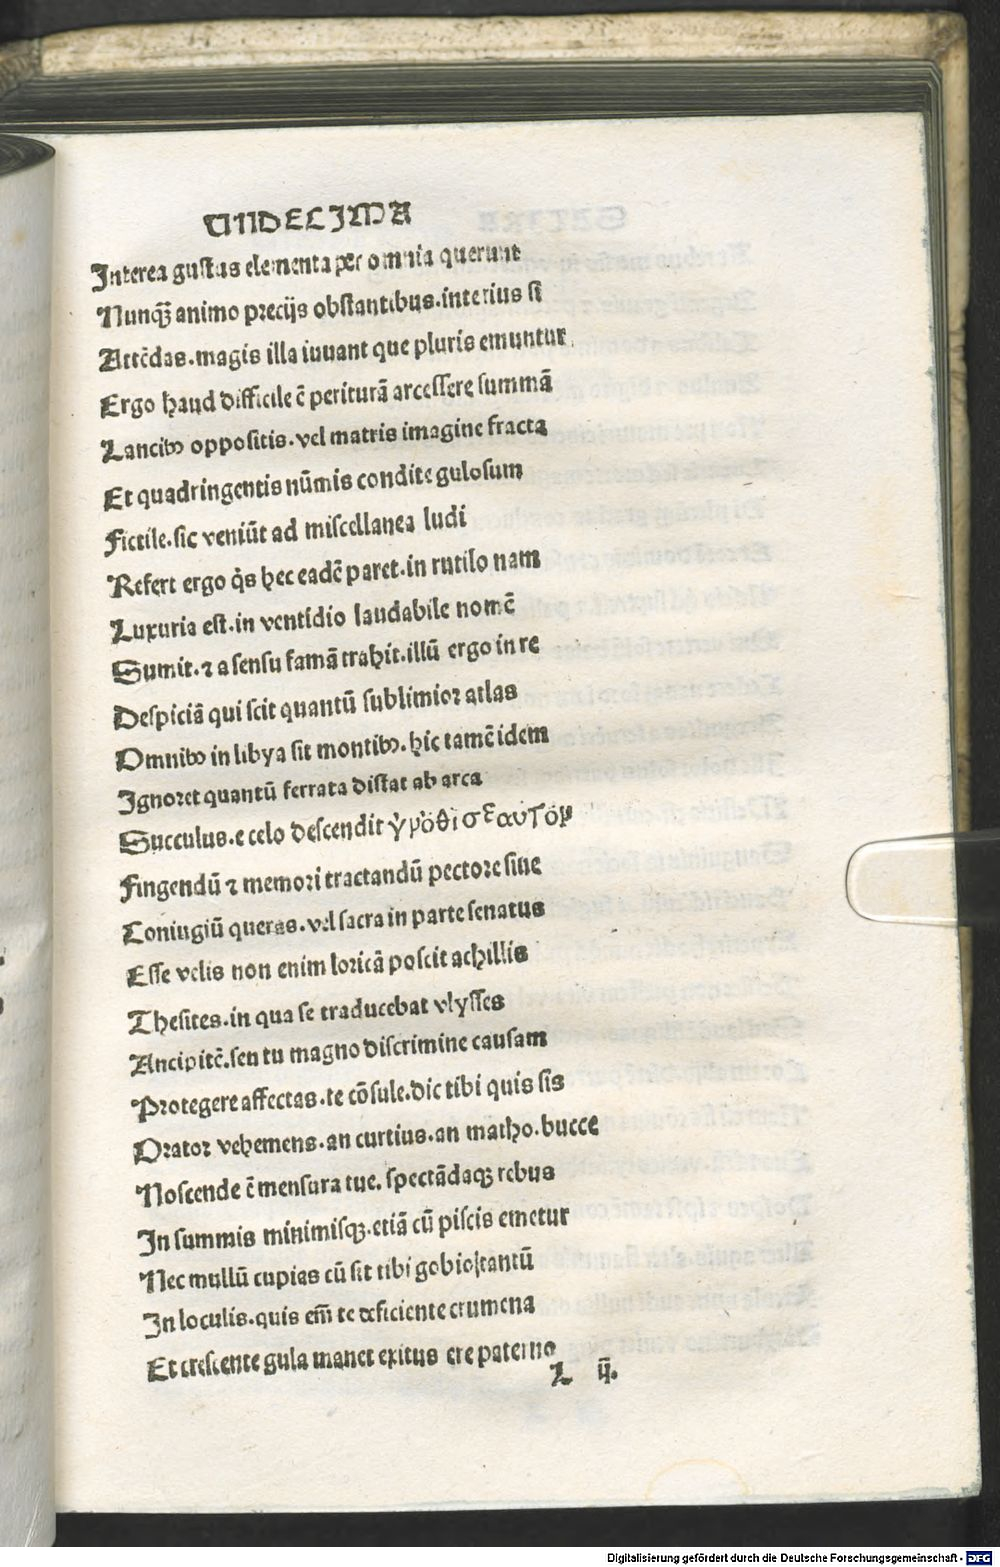 VNDECIMA
Interea gustus elementa per omnia querunt
Nunqȝ animo precijs obstantibus.interius si
Attēdas.magis illa iuuant que pluris emuntur.
Ergo haud difficile ē periturā arcessere summā
Lancibꝰ oppositis.vel matris imagine fracta
Et quadringentis nūmis condite gulosum
Fictile.sic veniūt ad miscellanea ludi
Refert ergo q̇s hec eadē paret.in rutilo nam
Luxuria est.in ventidio laudabile nomē
Sumit.⁊ a sensu famā trahit.illū ergo in re
Despiciā qui scit quantū sublimior atlas
Omnibꝰ in libya sit montibꝰ.hic tamē idem
Ignoret quantū ferrata distat ab arca
Succulus.e celo descendit γνόθι σεαυτόν
Fingendū ⁊ memori tractandū pectore siue
Coniugiū queras.vel sacra in parte senatus
Esse velis non enim loricā poscit achillis
Thesites.in qua se traducebat vlysses
Ancipitē.sen tu magno discrimine causam
Protegere affectas.te cōsule.dic tibi quis sis
Orator vehemens.an curtius.an matho.bucce
Noscende ē mensura tue.spectādaqȝ rebus
In summis minimisqȝ.etiā cū piscis emetur
Nec mullū cupias cū sit tibi gobio tantū
In loculis.quis em̄ te deficiente crumena
Et crescente gula manet exitus ere paterno
L ij.
Digitalisierung gefördert durch die Deutsche Forschungsgemeinschaft - DFG